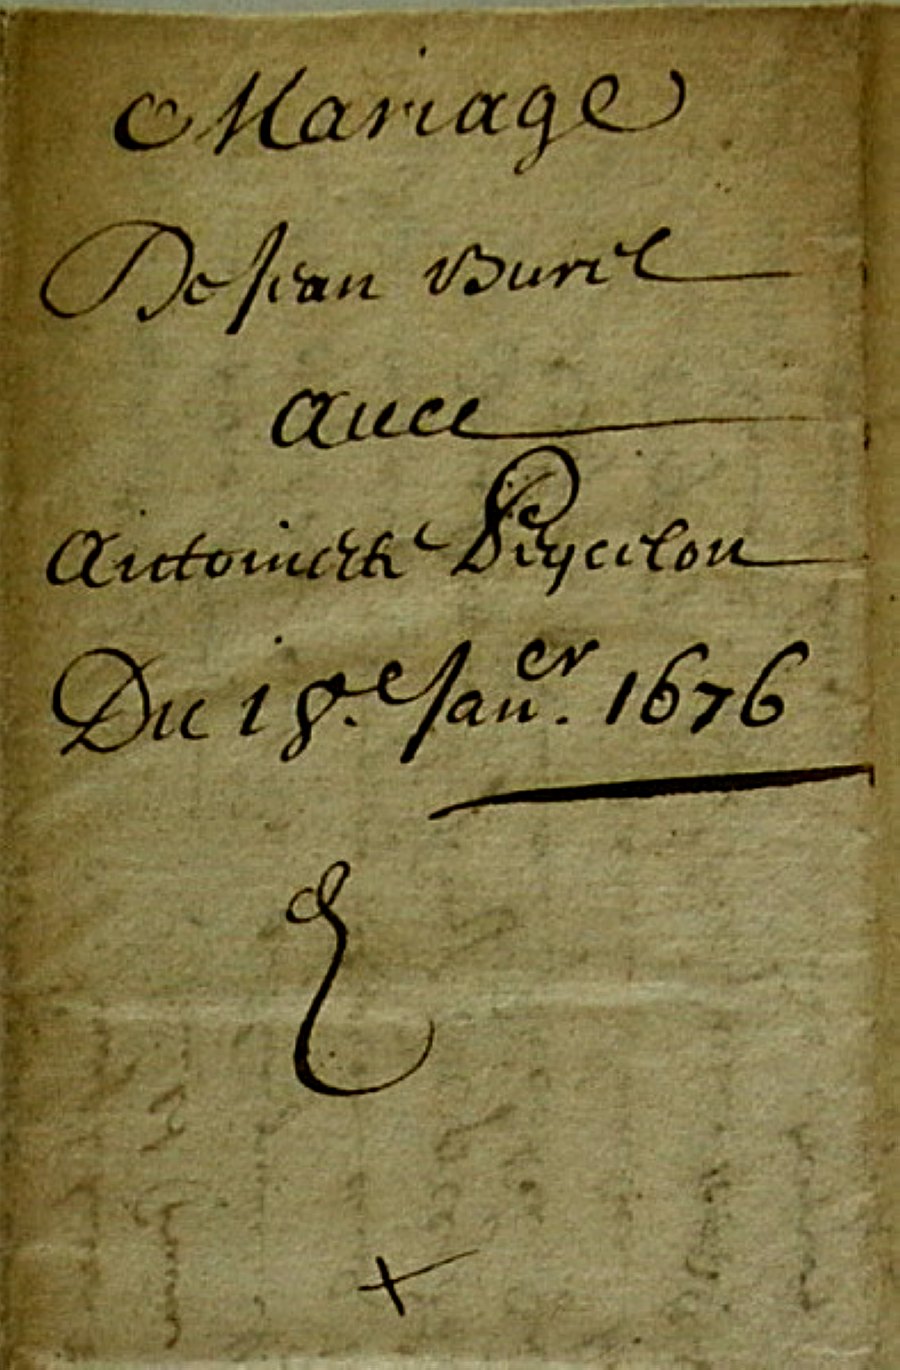 Mariage
De Jean Burel
auec
Antoinette Peyculon
Du 18.e Janer. 1676